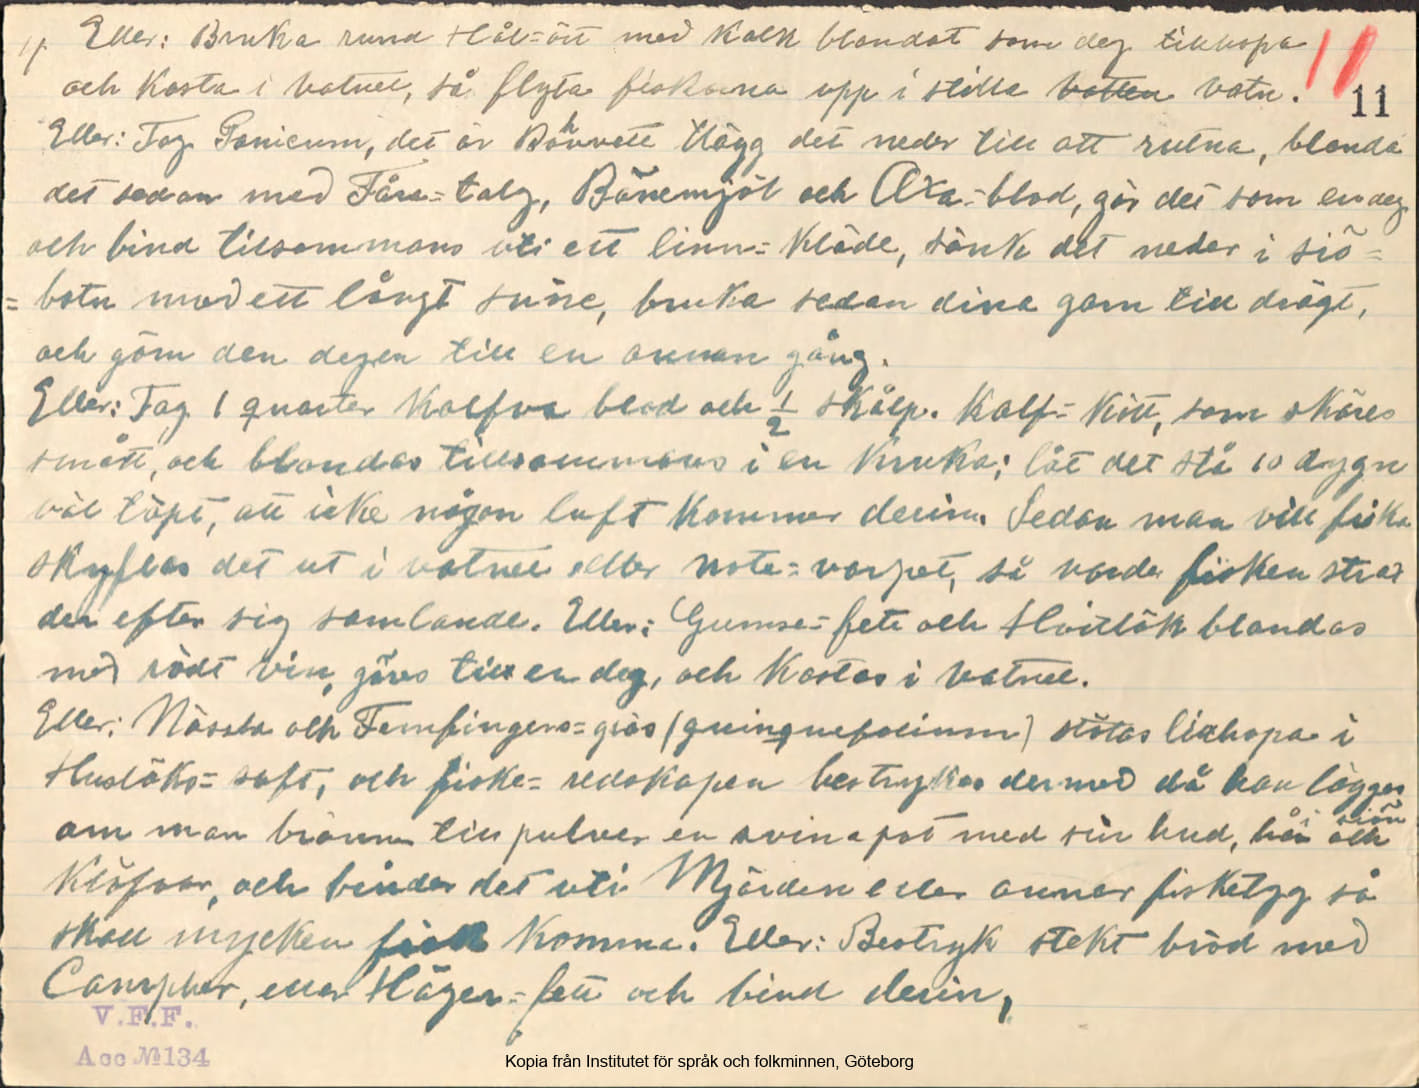 Eller: Bruka rund Hål-ört med kalk blandat som deg tilhopa
11
och kasta i vatnet, så flyta fiskarna upp i stilla vatten vatn.
11
Eller: Tag Panicum, det är Bohvete lägg det neder till att rutna, blanda
det sedan med Fåra-talg, Bönemjöl och Oxa-blod, gör det som en deg
och bind tilsammans uti ett linn-kläde, sänk det neder i siö-
-botn med ett långt snöre, bruka sedan dina garn till drägt,
och göm den degen till en annan gång.
Eller: Tag 1 quarter Kalfva blod och 1/2 skålp. Kalf-kött, som skäres
smått, och blandas tillsammans i en kruka; låt det stå 10 dygn
väl täpt, att icke någon luft kommer derin. Sedan man vill fiska
skyflas det ut i vatnet eller note-varpet, så varder fisken strax
der efter sig samlande. Eller: Gumse-fett och Hvitlök blandas
med rödt vin, göres till en deg, och kastas i vatnet.
Eller: Nässla och Femfingers-gräs (quinquefolium) stötas tilhopa i
Huslöks-saft, och fiske-redskapen bestrykas dermed då han lägges
om man bränner till pulver en svinapot med sin hud, hår och
i siön
Klöfvar, och binder det uti Mjärden eller annar fisketyg så
skall mycken fisk komma. Eller: Bestryk stekt bröd med
Campher, eller Häger-fett och bind derin,
V.F.F.
Acc №134
Kopia från Institutet för språk och folkminnen, Göteborg